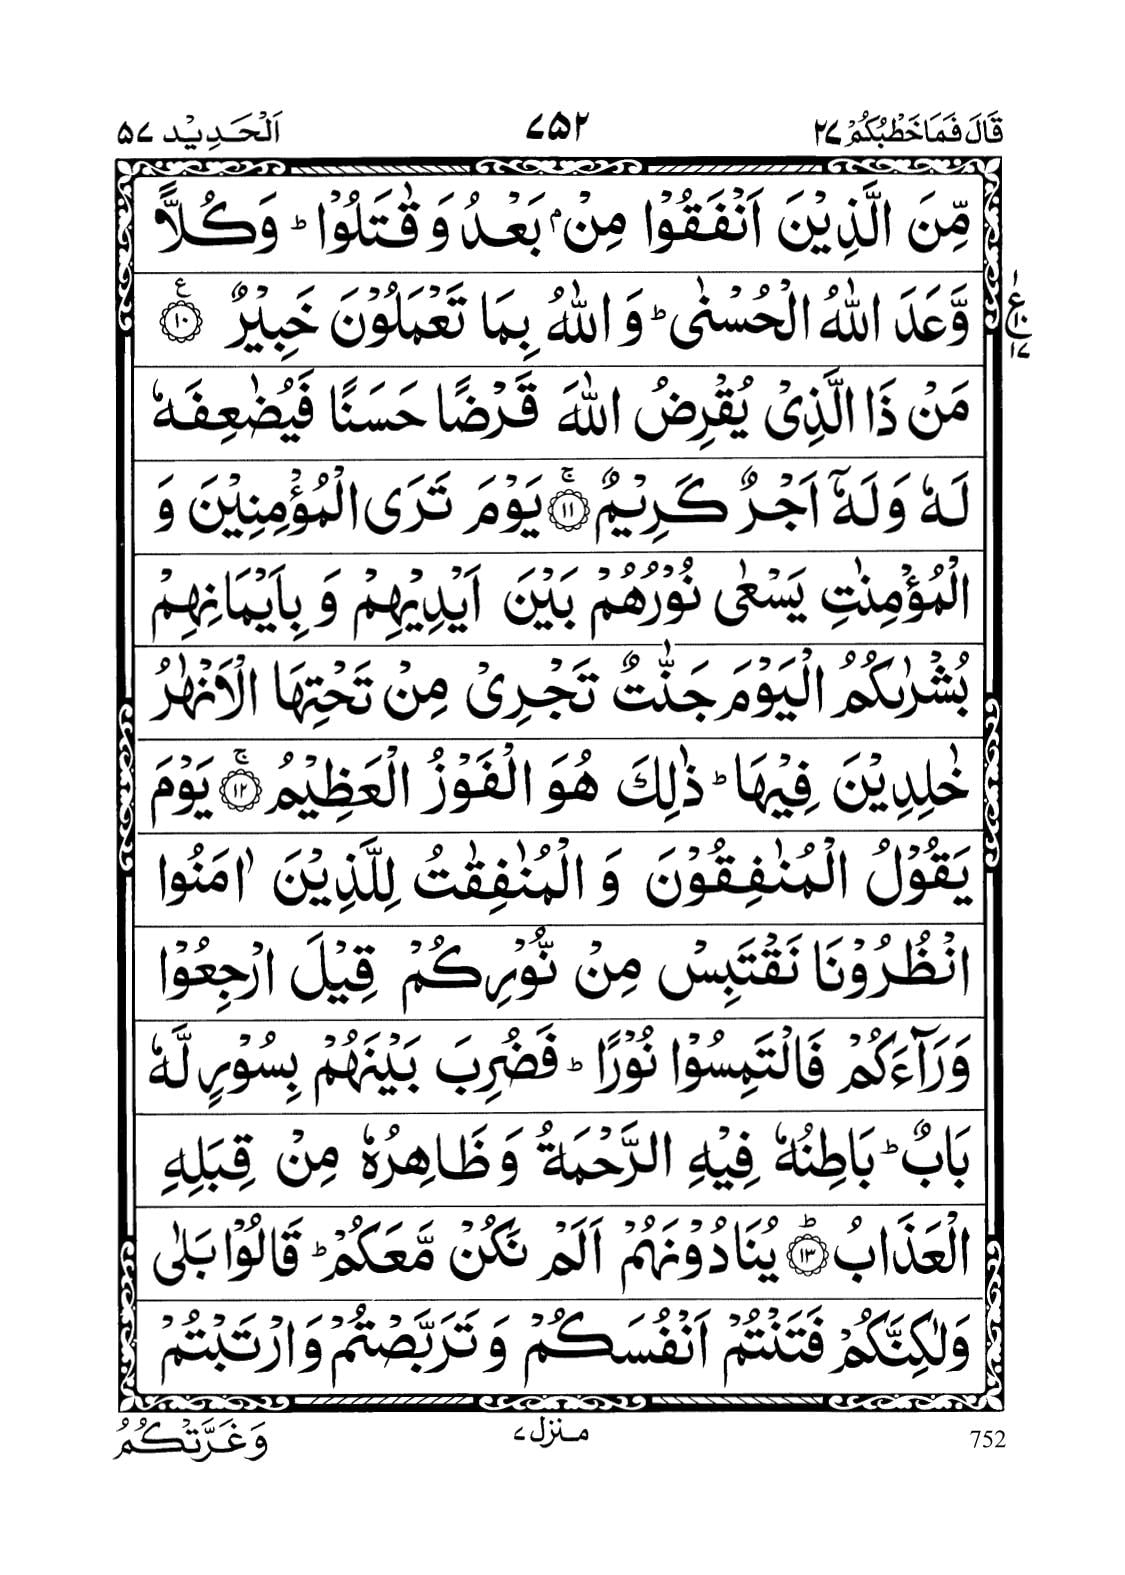 قَالَ فَمَا خَطْبُكُمْ ۲۷ ۷۵۲ اَلْحَدِيْد ۵۷
مِّنَ الَّذِيْنَ اَنْفَقُوْا مِنْۢ بَعْدُ وَ قٰتَلُوْا ؕ وَ كُلًّا
وَّعَدَ اللّٰهُ الْحُسْنٰى ؕ وَ اللّٰهُ بِمَا تَعْمَلُوْنَ خَبِيْرٌ ﴿۱۰﴾ ع
۱ ع ۱۰ ۱۷
مَنْ ذَا الَّذِيْ يُقْرِضُ اللّٰهَ قَرْضًا حَسَنًا فَيُضٰعِفَهٗ
لَهٗ وَ لَهٗۤ اَجْرٌ كَرِيْمٌ ﴿۱۱﴾ۚ يَوْمَ تَرَى الْمُؤْمِنِيْنَ وَ
الْمُؤْمِنٰتِ يَسْعٰى نُوْرُهُمْ بَيْنَ اَيْدِيْهِمْ وَ بِاَيْمَانِهِمْ
بُشْرٰىكُمُ الْيَوْمَ جَنّٰتٌ تَجْرِيْ مِنْ تَحْتِهَا الْاَنْهٰرُ
خٰلِدِيْنَ فِيْهَا ؕ ذٰلِكَ هُوَ الْفَوْزُ الْعَظِيْمُ ﴿۱۲﴾ۚ يَوْمَ
يَقُوْلُ الْمُنٰفِقُوْنَ وَ الْمُنٰفِقٰتُ لِلَّذِيْنَ اٰمَنُوا
انْظُرُوْنَا نَقْتَبِسْ مِنْ نُّوْرِكُمْ قِيْلَ ارْجِعُوْا
وَرَآءَكُمْ فَالْتَمِسُوْا نُوْرًا ؕ فَضُرِبَ بَيْنَهُمْ بِسُوْرٍ لَّهٗ
بَابٌ ؕ بَاطِنُهٗ فِيْهِ الرَّحْمَةُ وَ ظَاهِرُهٗ مِنْ قِبَلِهِ
الْعَذَابُ ﴿۱۳﴾ؕ يُنَادُوْنَهُمْ اَلَمْ نَكُنْ مَّعَكُمْ ؕ قَالُوْا بَلٰى
وَلٰكِنَّكُمْ فَتَنْتُمْ اَنْفُسَكُمْ وَ تَرَبَّصْتُمْ وَ ارْتَبْتُمْ
752 منزل ۷ وَ غَرَّتْكُمُ